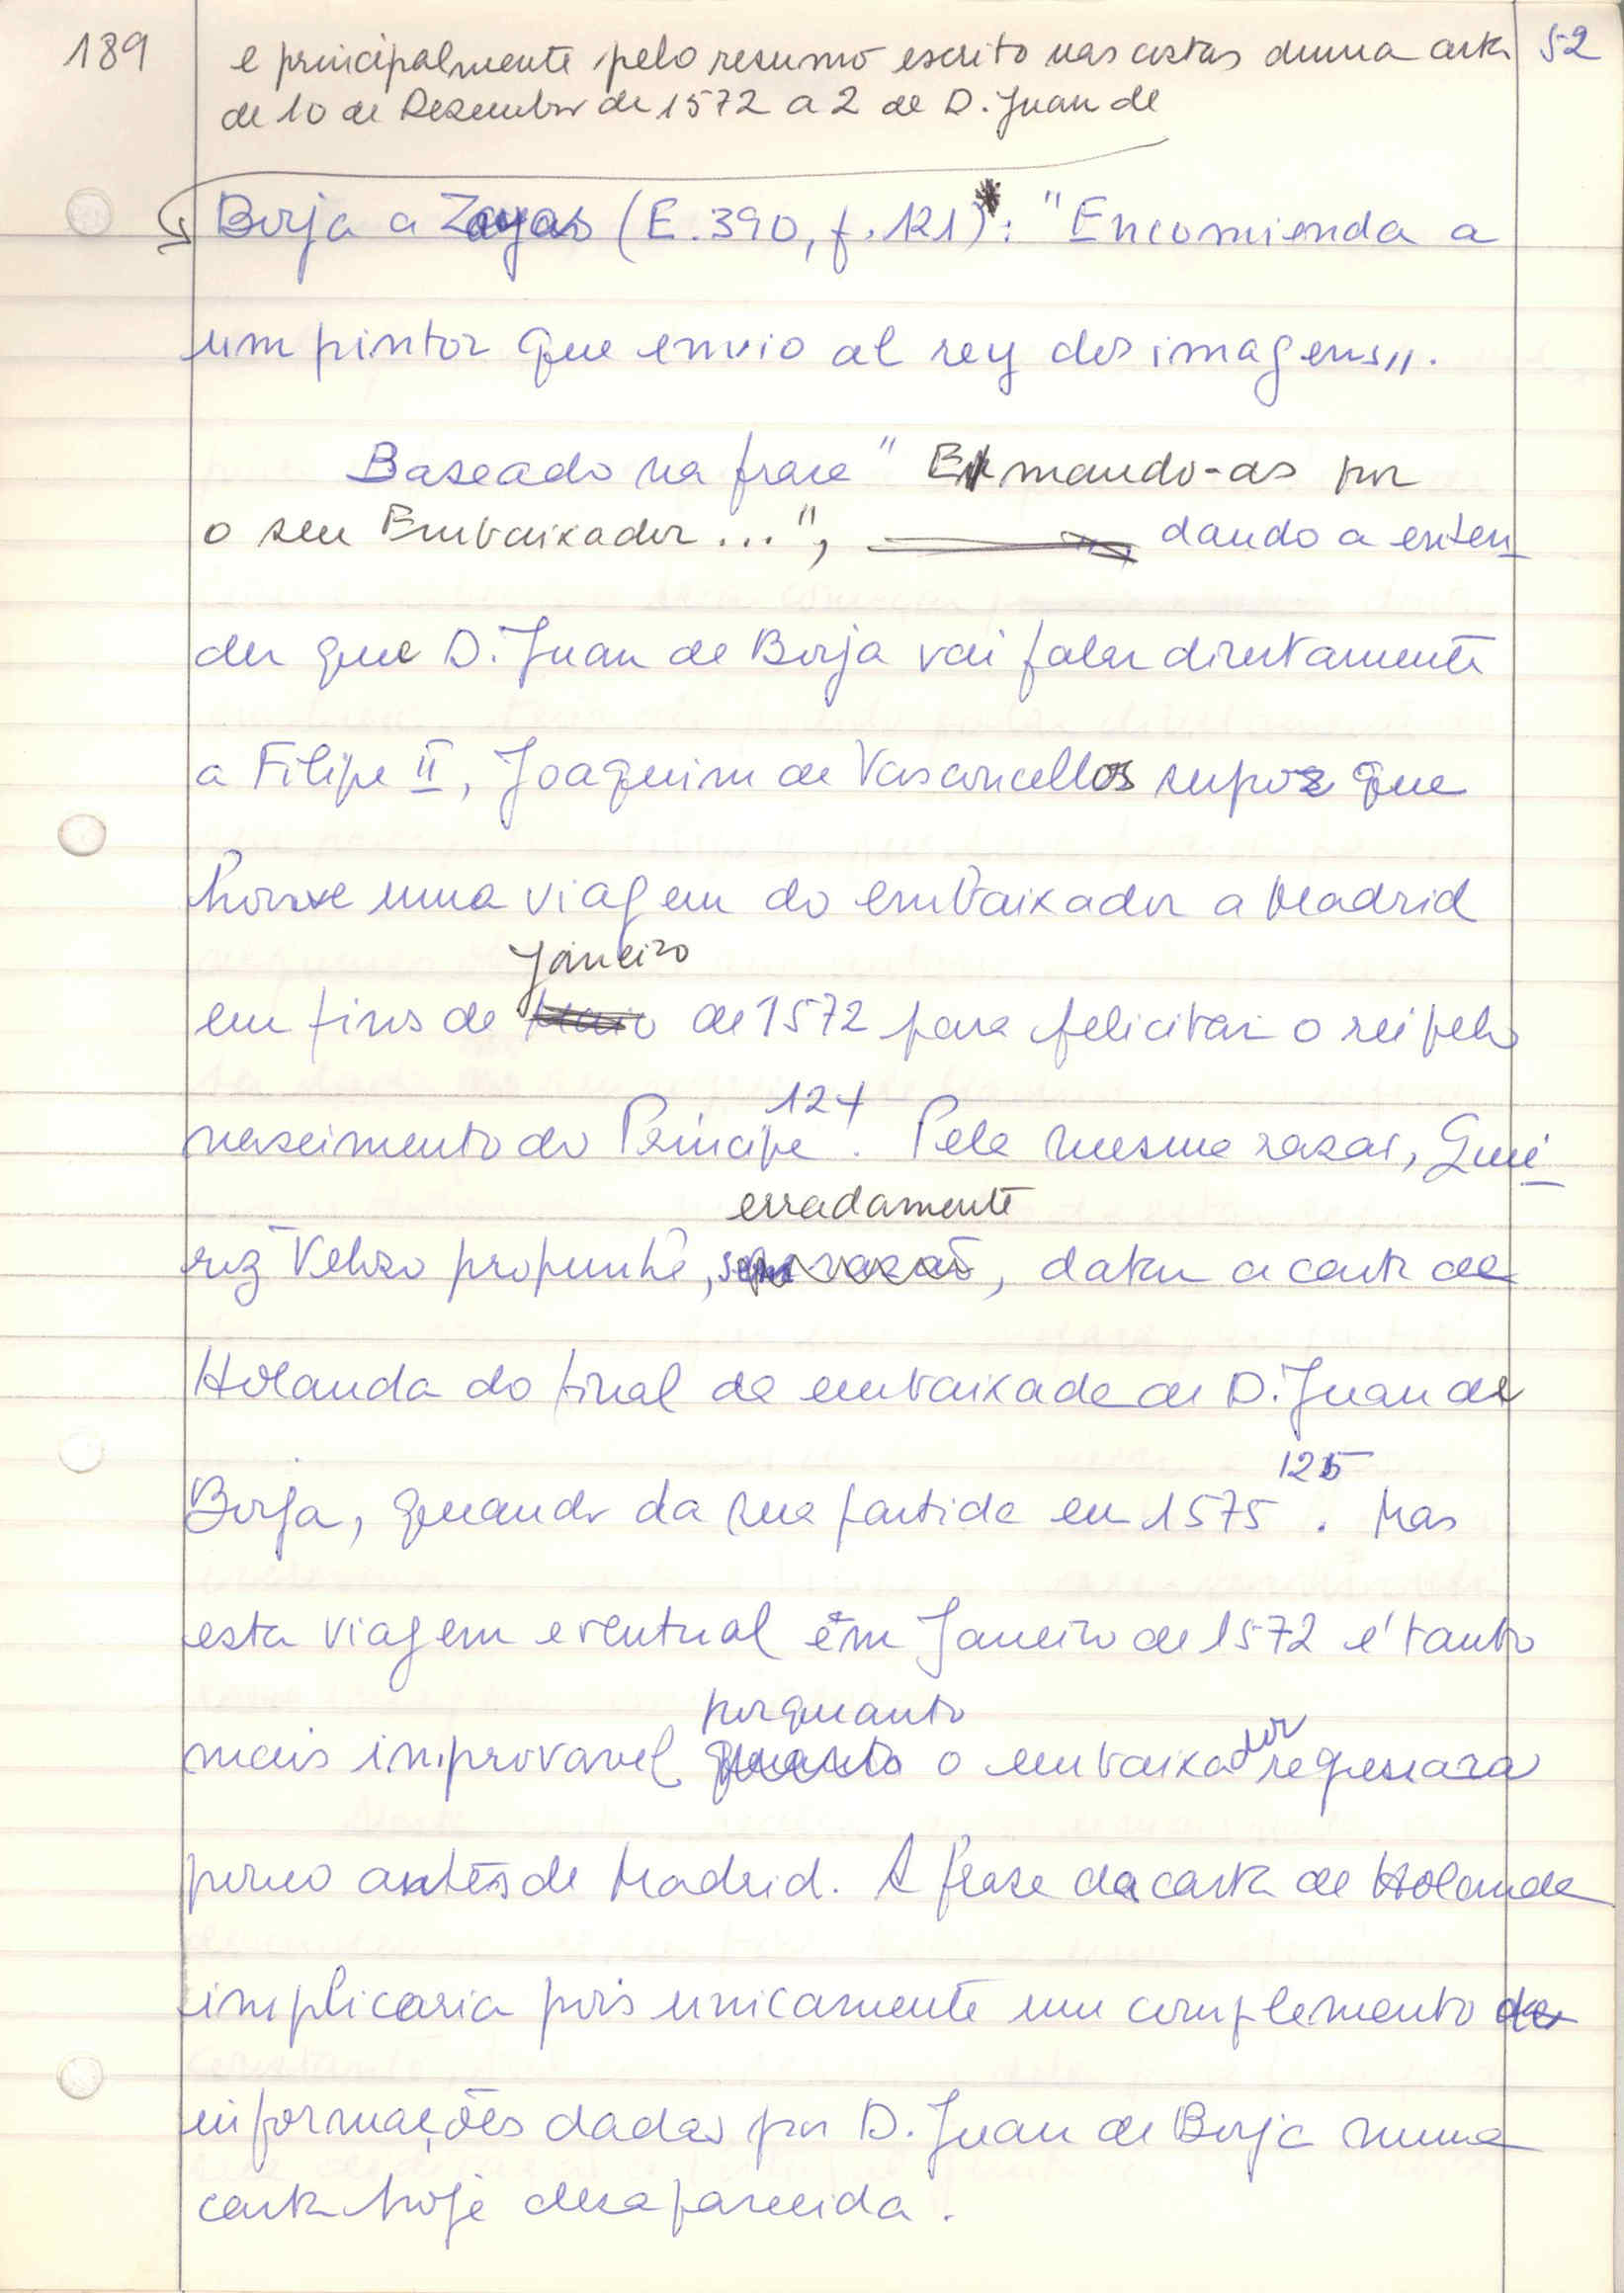 189
52
e principalmente pelo resumo escrito nas costas duma carta
de 10 de Dezembro de 1572 a 2 de D. Juan de
Borja a Zayas (E.390, f.121): "Encomienda a
um pintor que envio al rey dos imagens".
Baseado na frase " E mando-as por
o seu Embaixador...", dando a enten
der que D. Juan de Borja vai falar directamente
a Filipe II, Joaquim de Vasconcellos supoz que
houve uma viagem do embaixador a Madrid
Janeiro
em fins de Maio de 1572 para felicitar o rei pelo
nascimento do Principe 124. Pela mesma razão, Quei
erradamente
roz Velozo propunha, sem razão, datar a carta de
Holanda do final da embaixada de D. Juan de
Borja, quando da sua partida em 1575 125. Mas
esta viagem eventual em Janeiro de 1572 é tanto
porquanto
mais improvavel quanto o embaixador regressara
pouco antes de Madrid. A frase da carta de Holanda
implicaria pois unicamente um complemento de
informações dadas por D. Juan de Borja numa
carta hoje desaparecida.